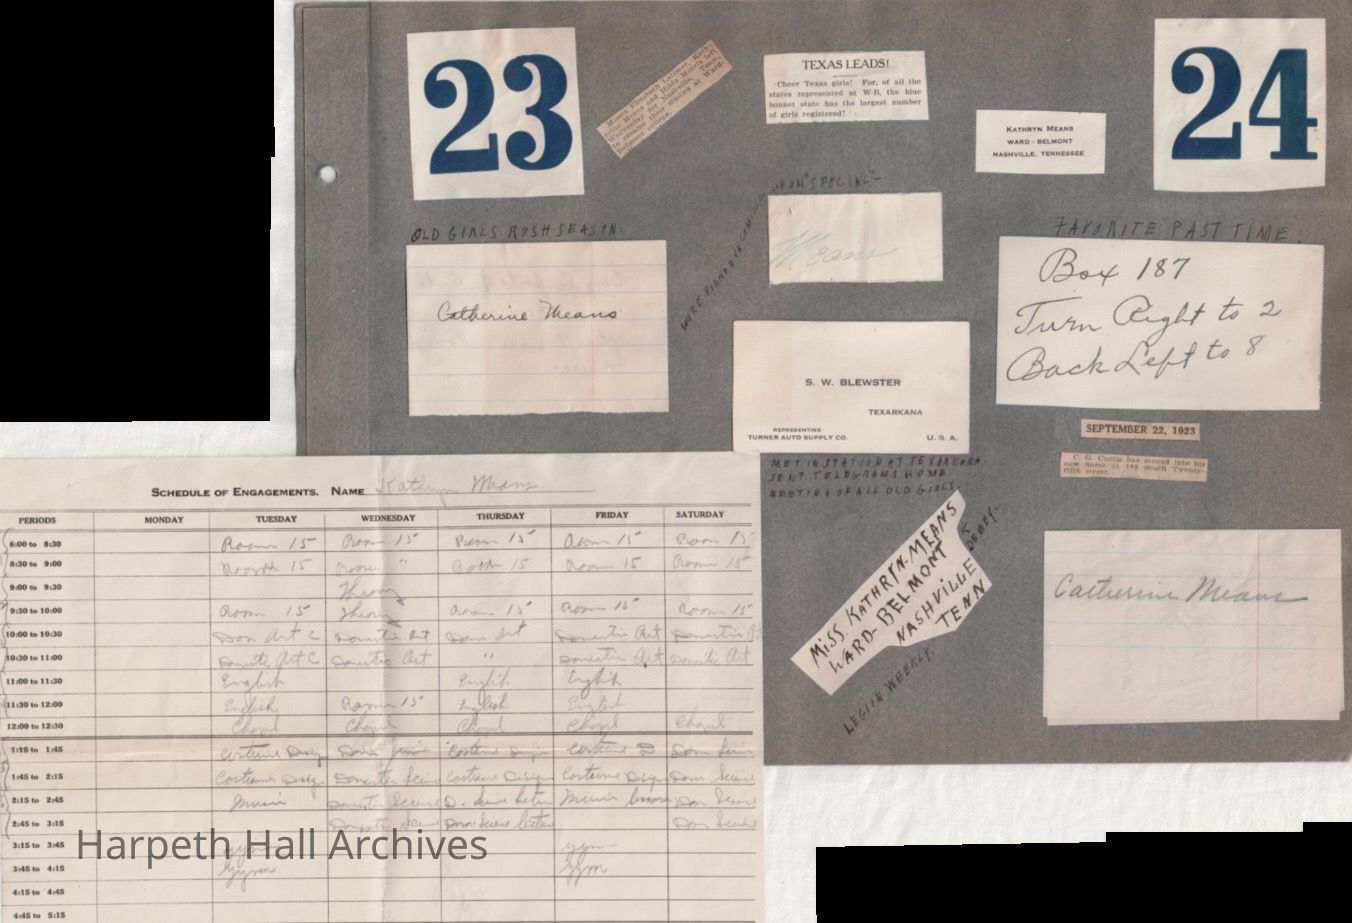 23
Misses Elizabeth Latimer, Kath-
eryn Means and Hilda Morris left
Wednesday for Nashville, Tenn.,
to resume their studies at Ward-
Belmont college.
TEXAS LEADS!
Cheer Texas girls! For, of all the
states represented at W-B, the blue
bonnet state has the largest number
of girls registered!
KATHRYN MEANS
WARD - BELMONT
NASHVILLE, TENNESSEE
24
OLD GIRLS RUSH SEASON.
Catherine Means
COMING UPON "SPECIAL"-
Means
FAVORITE PAST TIME.
Box 187
Turn Right to 2
Back Left to 8
S. W. BLEWSTER
TEXARKANA
REPRESENTING
TURNER AUTO SUPPLY CO.
U. S. A.
MET IN STATION AT TEXARKANA.
SENT TELEGRAMS HOME.
MEETING OF ALL OLD GIRLS.
SEPTEMBER 22, 1923
C. G. Curtis has moved into his
new home at 182 south Twenty-
fifth street.
MISS. KATHRYN-MEANS
WARD-BELMONT
NASHVILLE
TENN
IS DEWEY.
LEGION WEEKLY.
Catherine Means
SCHEDULE OF ENGAGEMENTS. NAME Kathryn Means.
PERIODS MONDAY TUESDAY WEDNESDAY THURSDAY FRIDAY SATURDAY
8:00 to 8:30 Room 15 Room 15 Room 15 Room 15 Room 15
8:30 to 9:00 Room 15 Room " Room 15 Room 15 Room 15
9:00 to 9:30 Theory
9:30 to 10:00 Room 15 Theory Room 15 Room 15 Room 15
10:00 to 10:30 Dom Art C Domestic Art Dom Art Domestic Art Domestic Art
10:30 to 11:00 Domestic Art C Domestic Art " Domestic Art Domestic Art
11:00 to 11:30 English English English
11:30 to 12:00 English Room 15 English English
12:00 to 12:30 Chapel Chapel Chapel Chapel Chapel
1:15 to 1:45 Costume Desig Dom Science Costume Design Costume D Dom Scien
1:45 to 2:15 Costume Desig Domestic Scien Costume Design Costume Design Dom Science
2:15 to 2:45 Music Domestic Science D. Science lectur Music lesson Dom Science
2:45 to 3:15 Domestic Scien Dom Science lecture Dom Science
3:15 to 3:45 gym gym
3:45 to 4:15 Gym Gym
4:15 to 4:45
4:45 to 5:15
Harpeth Hall Archives